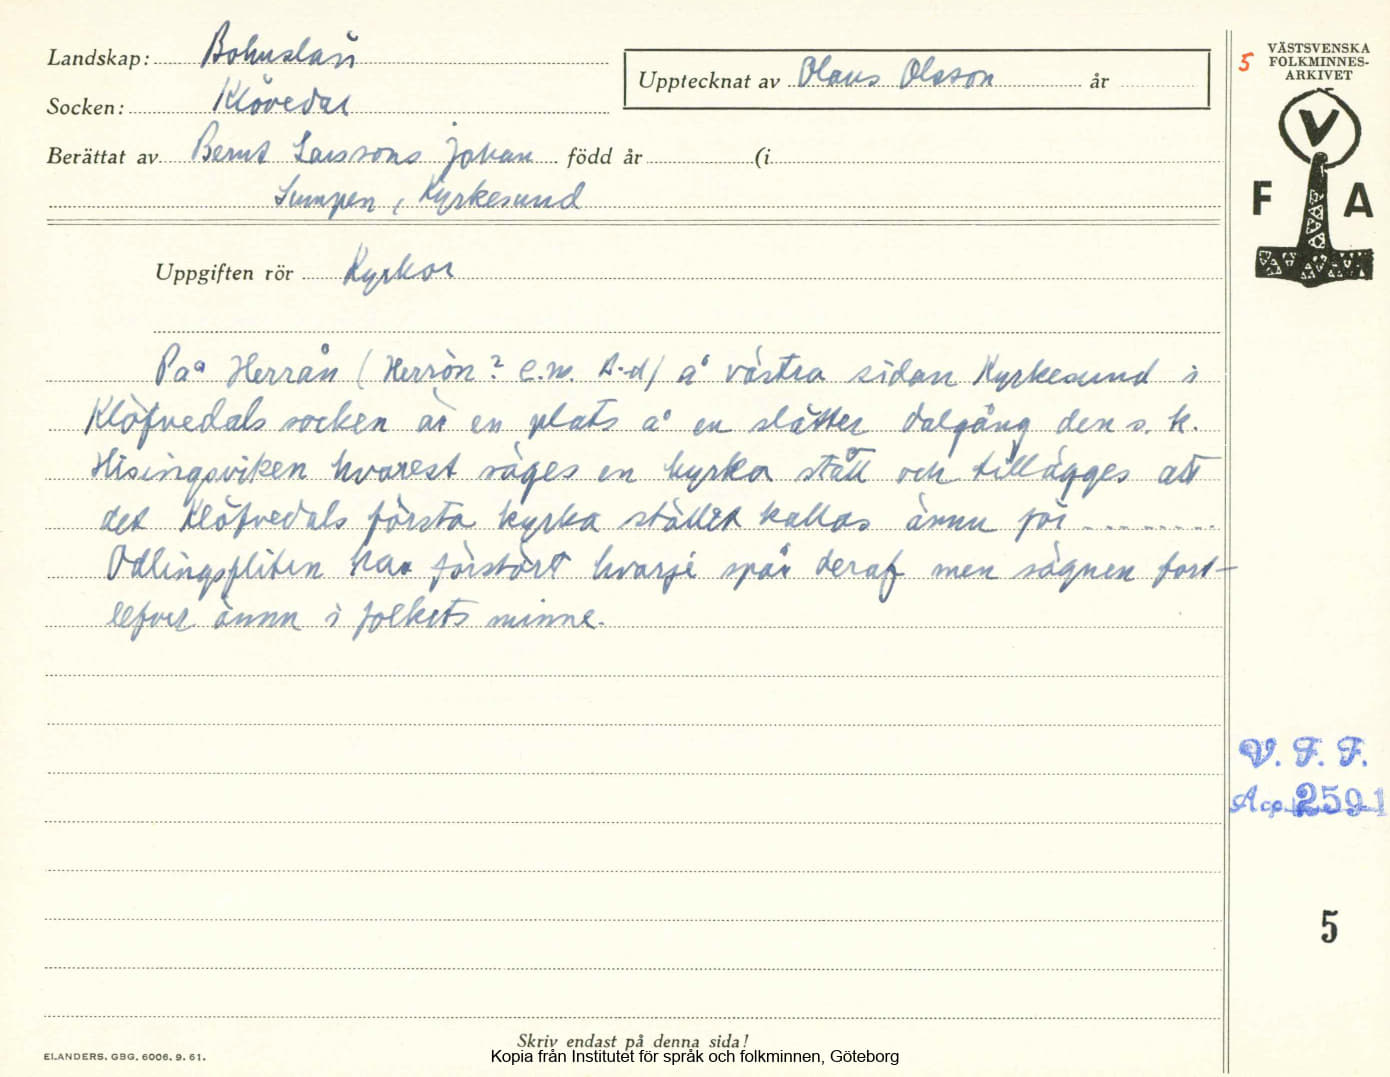 Landskap: Bohuslän
Socken: Klövedal
Berättat av Bernt Larssons Johan född år (i
Sumpen, Kyrkesund
Upptecknat av Olaus Olsson år
5
VÄSTSVENSKA
FOLKMINNES-
ARKIVET
V
F A
Uppgiften rör Kyrkor
Paa Herrån (Herrön? e.m. A-d) å västra sidan Kyrkesund i
Klöfvedals socken är en plats å en slätter dalgång den s. k.
Hisingsviken hvarest säges en kyrka stått och tillägges att
det Klöfvedals första kyrka stället kallas ännu för - - - - - - -
Odlingsfliten har förstört hvarje spår deraf men sägnen fort-
lefver ännu i folkets minne.
V. F. F.
Acc. 2591
5
Skriv endast på denna sida!
ELANDERS. GBG. 6006. 9. 61.
Kopia från Institutet för språk och folkminnen, Göteborg